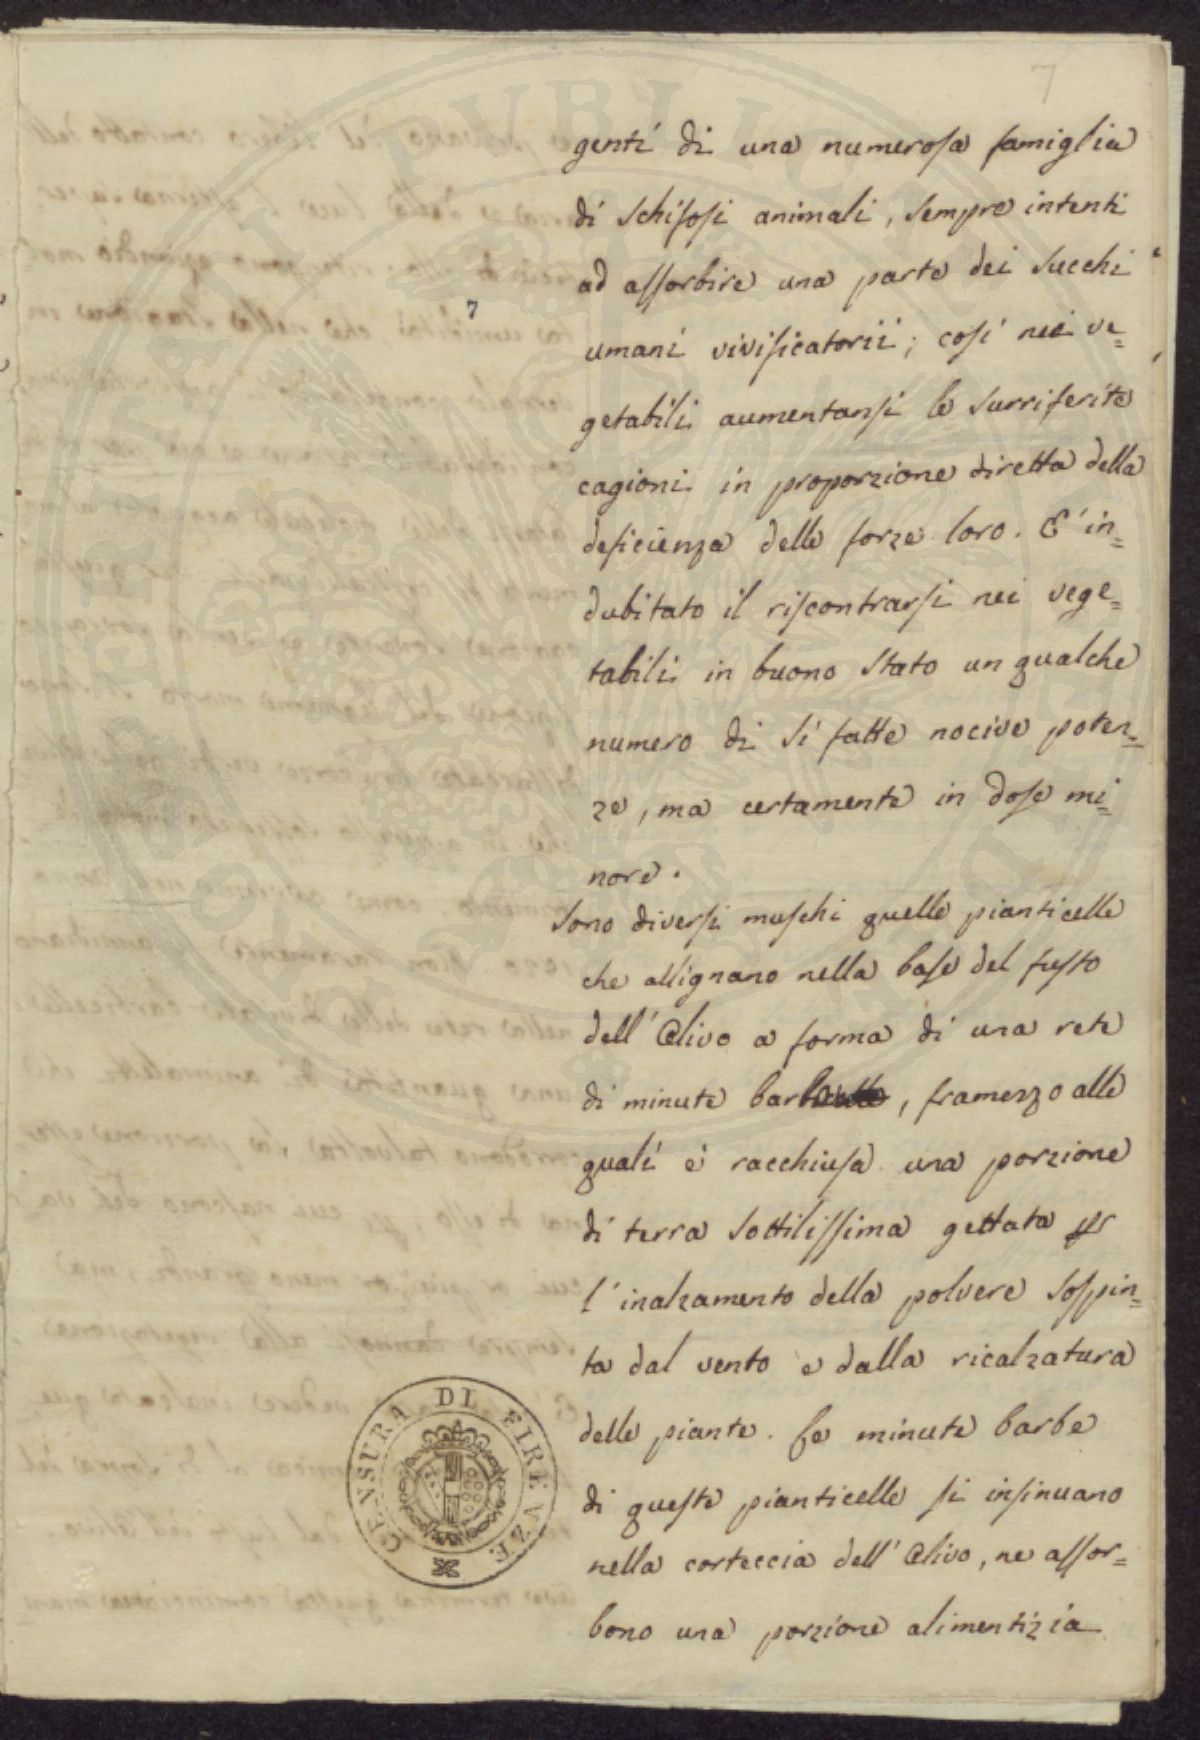 7
genti di una numerosa famiglia
di schifosi animali, sempre intenti
ad assorbire una parte dei succhi
7
umani vivificatorii; così nei ve=
getabili aumentansi le surriferite
cagioni in proporzione diretta della
deficienza delle forze loro. E' in=
dubitato il riscontrarsi nei vege=
tabili in buono stato un qualche
numero di sì fatte nocive poten=
ze, ma certamente in dose mi=
nore.
Sono diversi muschi quelle pianticelle
che allignano nella base del fusto
dell'Olivo a forma di una rete
di minute barbe, framezzo alle
quali è racchiusa una porzione
di terra sottilissima gettata per
l'inalzamento della polvere sospin=
ta dal vento e dalla ricalzatura
delle piante. Le minute barbe
di queste pianticelle si insinuano
nella corteccia dell'Olivo, ne assor=
bono una porzione alimentizia
CENSURA DI FIRENZE